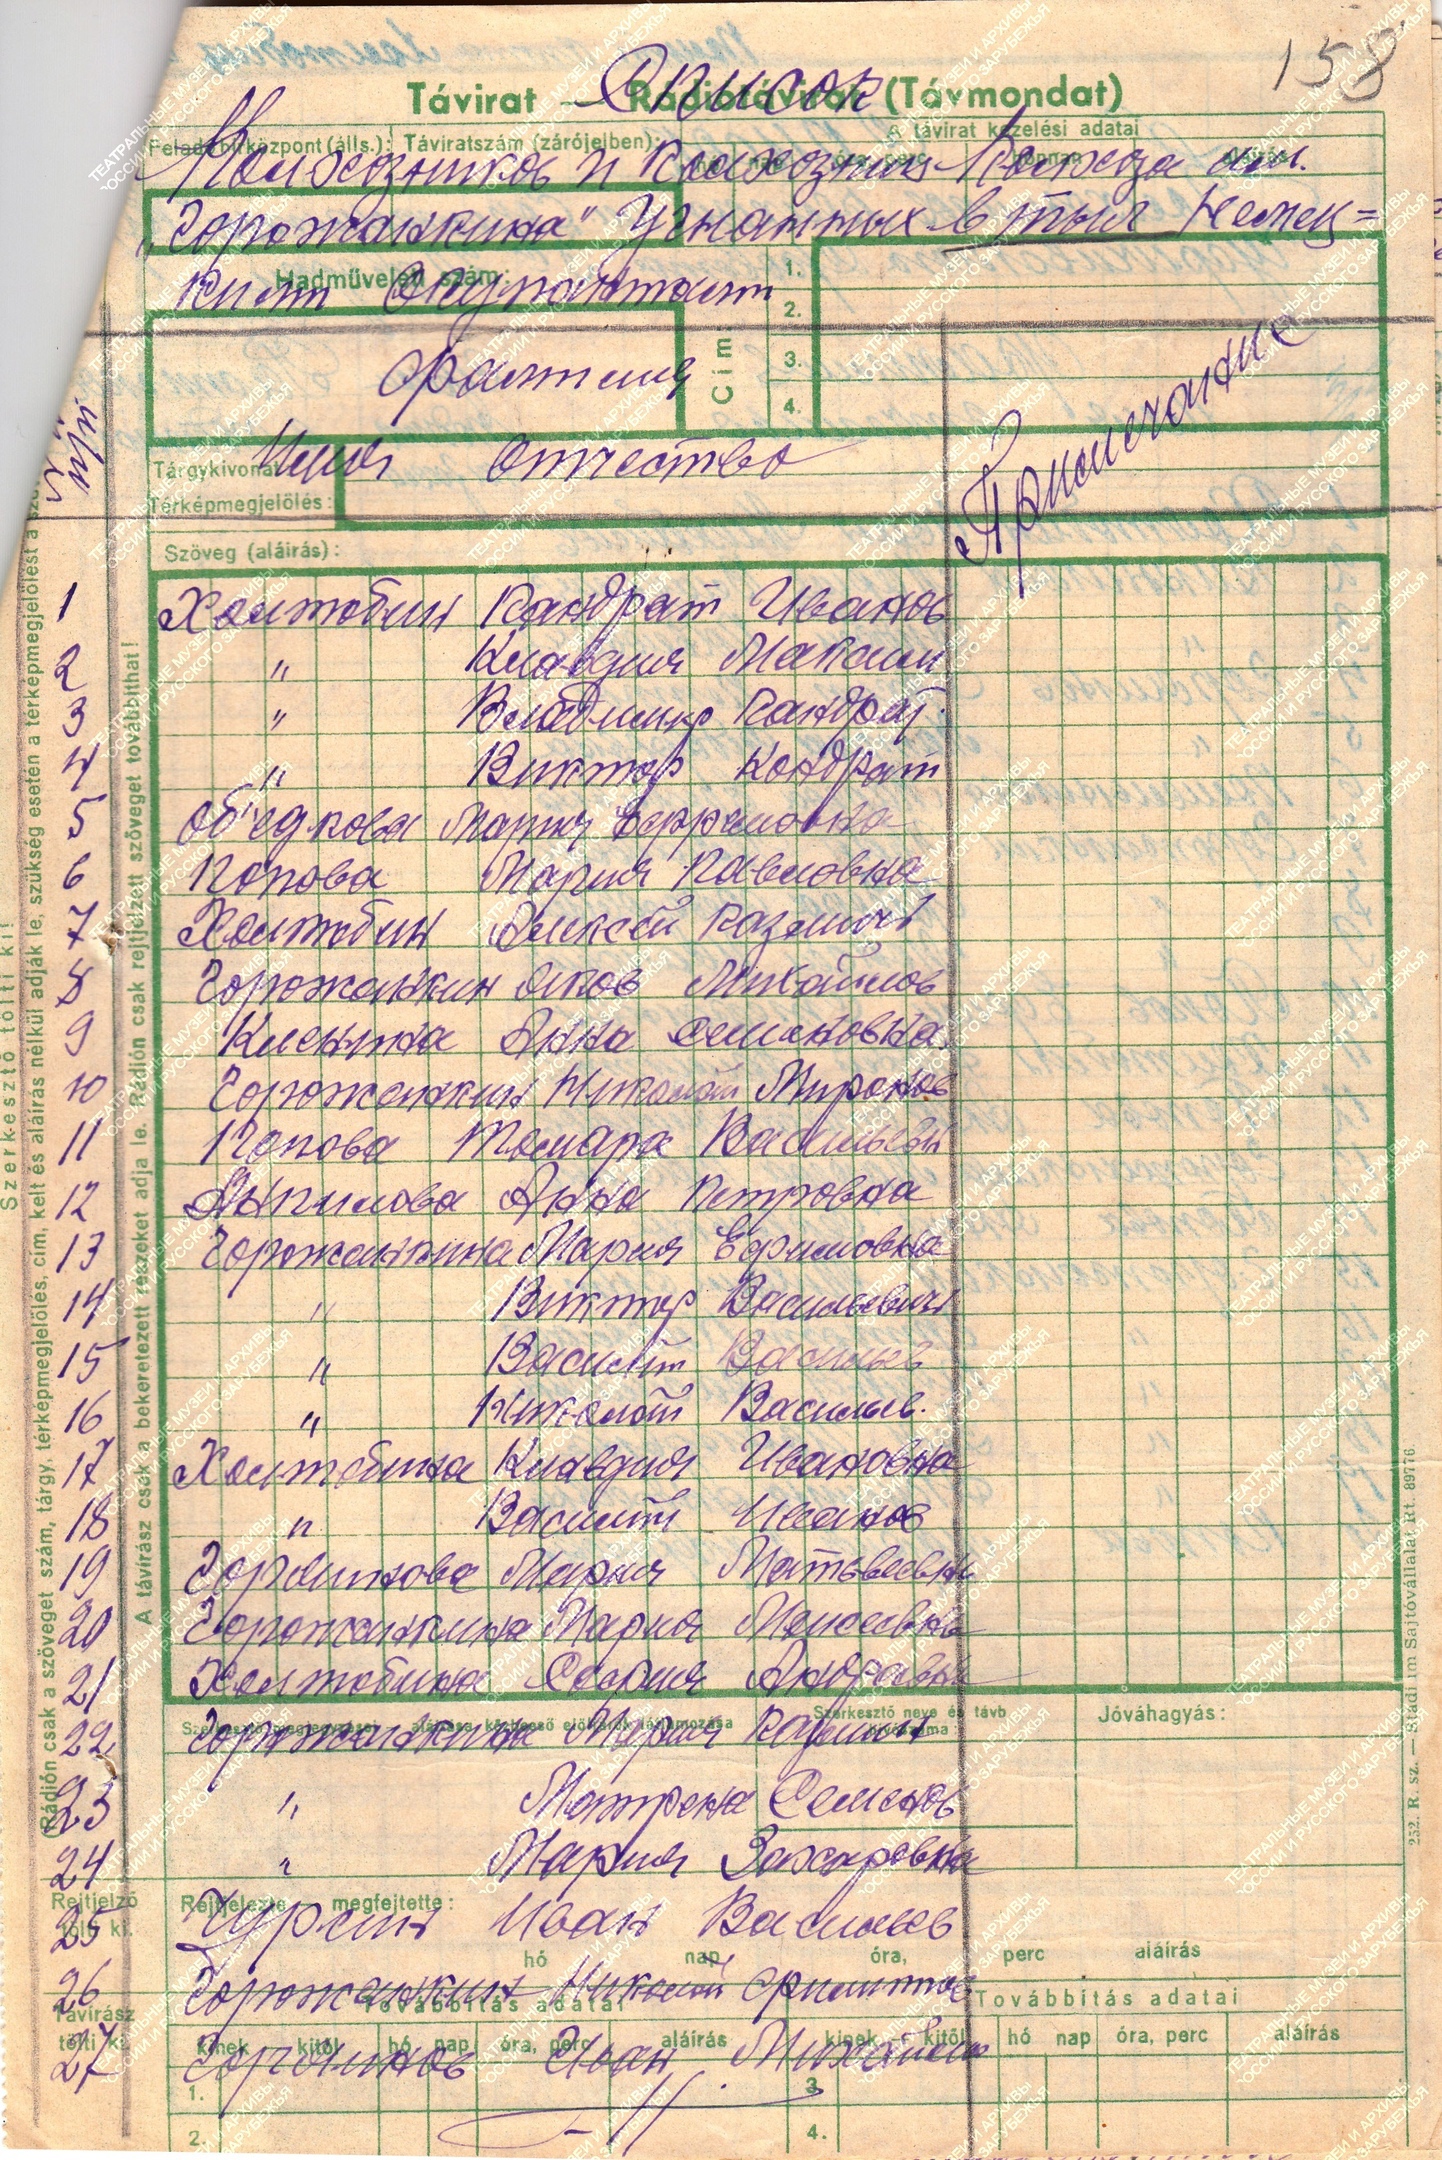 158
Список
Távirat — Rádiótávirat (Távmondat)
A távirat kezelési adatai
Feladó hírközpont (álls.): Táviratszám (zárójelben):
Колхозников и колхозниц Колхоза им.
"Горожанкина" Угнанных в тыл немец=
Hadműveleti szám:
ким Окупантами
Cím:
1.
2.
3.
4.
п/п
Фамилия
Имя отчество
Примечание
Tárgykivonat
Térképmegjelölés:
Szöveg (aláírás):
1 Холтобин Кандрат Иванов
2 " Клавдия Максим
3 " Владимир Кандрат.
4 " Виктор Кондрат
5 Об'едкова Мария Ефремовна
6 Попова Мария Павловна
7 Холтобин Алексей Казмич
8 Горожанкин Яков Михайлов
9 Кленина Анна Семеновна
10 Горожанкин Николай Миронов
11 Попова Томара Васильевн
12 Анпилова Анна Петровна
13 Горожанкина Мария Ефимовна
14 " Виктор Васильевич
15 " Василий Васильев
16 " Николай Васильев.
17 Холтобина Клавдия Ивановна
18 " Василий Иванов
19 Горяинова Мария Матвеевн
20 Горожанкина Мария Моисеевна
21 Холтобина София Андреевн
Szerkesztő neve és távb
Jóváhagyás:
22 Горожанкина Мария Казмин
23 " Матрена Семенов
24 " Мария Захаровна
Rejtjelző tölti ki.
Rejtjelezte megfejtette:
25 Чурсин Иван Васильев
hó nap óra, perc aláírás
26 Горожанкин Николай Филиппов
Távírász tölti ki.
Továbbítás adatai
Továbbítás adatai
kinek kitől hó nap óra, perc aláírás kinek kitől hó nap óra, perc aláírás
27 Горяинов Иван Михайлов
1.
3.
2.
4.
Szerkesztő tölti ki!
(Rádión csak a szöveget szám, tárgy, térképmegjelölés, cím, kelt és aláírás nélkül adják le, szükség esetén a térképmegjelölést a
A távírász csak a bekeretezett részeket adja le. Rádión csak rejtjelzett szöveget továbbíthat!
252. R. sz. — Stádium Sajtóvállalat Rt. 89776
ТЕАТРАЛЬНЫЕ МУЗЕИ И АРХИВЫ
РОССИИ И РУССКОГО ЗАРУБЕЖЬЯ